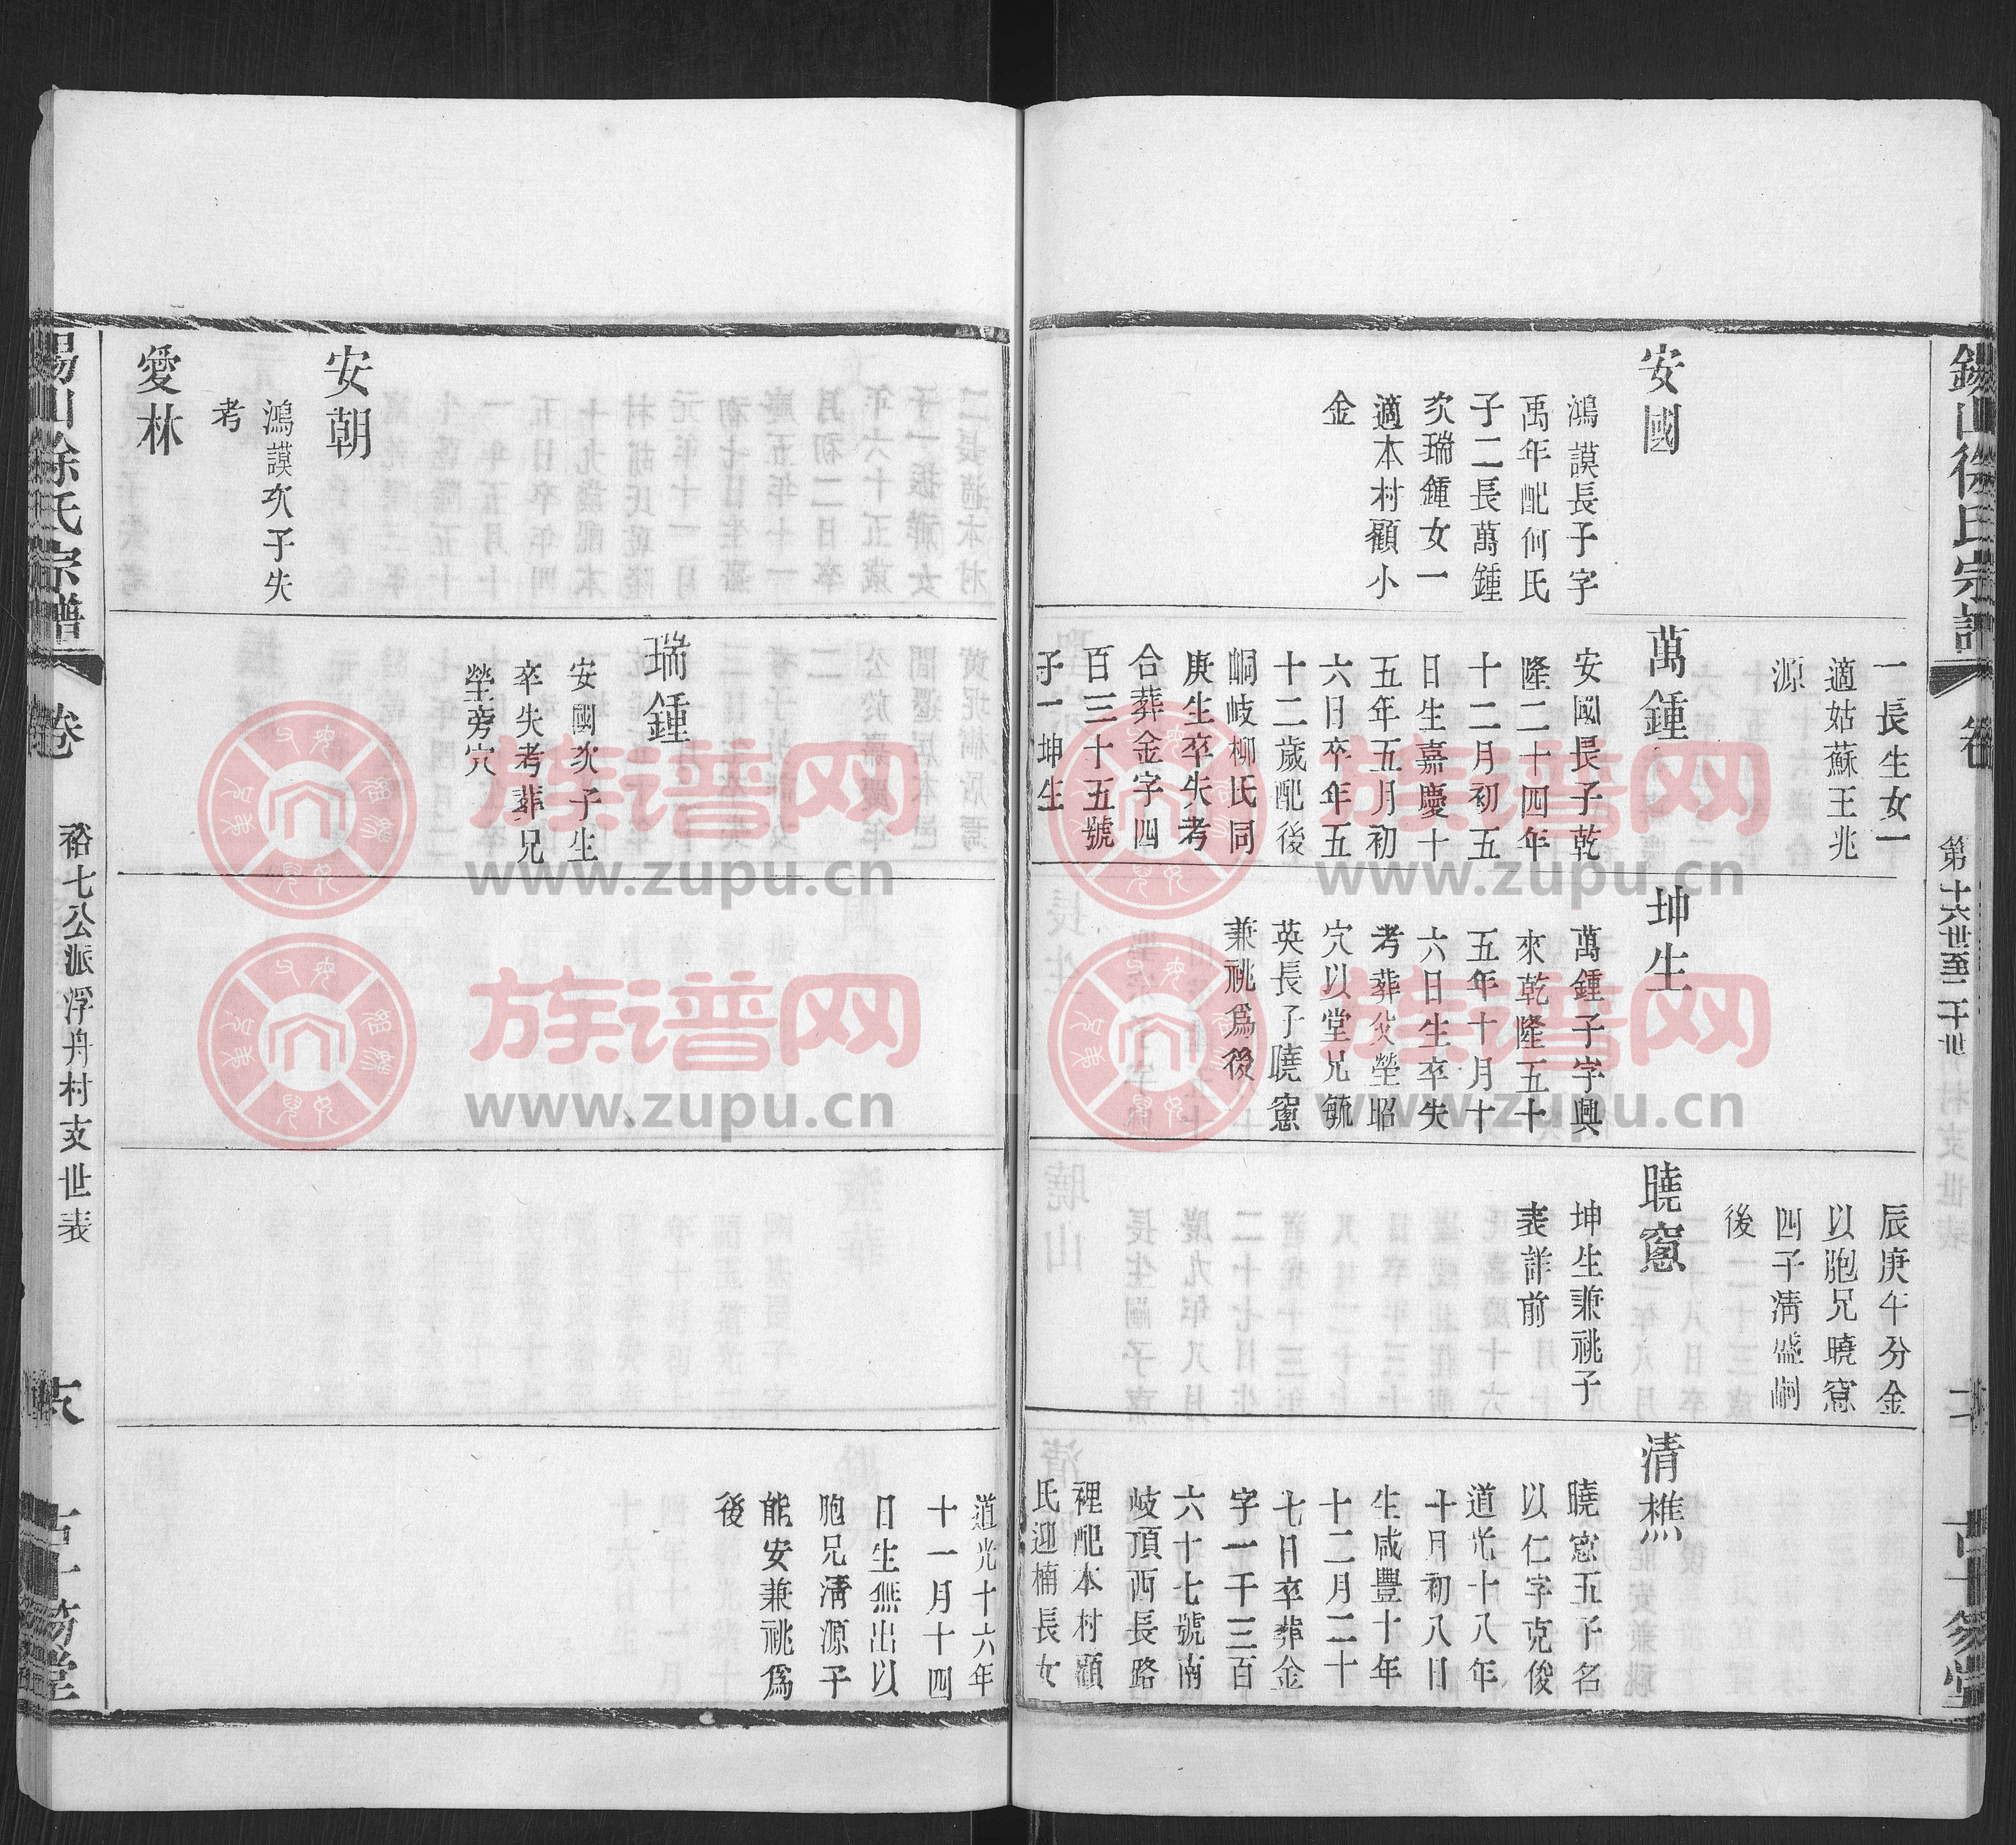 錫山徐氏宗譜
卷
第十六世至二十世
安國
鴻謨長子字
禹年配何氏
子二長萬鍾
次瑞鍾女一
適本村顧小
金
一長生女一
適姑蘇王兆
源
萬鍾
安國長子乾
隆二十四年
十二月初五
日生嘉慶十
五年五月初
六日卒年五
十二歲配後
峒岐柳氏同
庚生卒失考
合葬金字四
百三十五號
子一坤生
坤生
萬鍾子字興
來乾隆五十
五年十月十
六日生卒失
考葬父塋昭
穴以堂兄毓
英長子曉窻
兼祧爲後
辰庚午分金
以胞兄曉窻
四子清盛嗣
後
曉窻
坤生兼祧子
表詳前
清樵
曉窻五子名
以仁字克俊
道光十八年
十月初八日
生咸豐十年
十二月二十
七日卒葬金
字一千三百
六十七號南
岐頂西長路
裡配本村顧
氏迎楠長女
道光十六年
十一月十四
日生無出以
胞兄清源子
能安兼祧爲
後
安朝
鴻謨次子失
考
愛林
瑞鍾
安國次子生
卒失考葬兄
塋旁穴
錫山徐氏宗譜
卷
裕七公派浮舟村支世表
族谱网
www.zupu.cn
族谱网
www.zupu.cn
族谱网
www.zupu.cn
族谱网
www.zupu.cn